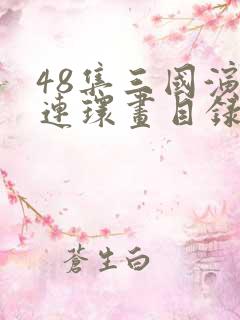 48集三國演
連環畫目錄
蒼生白